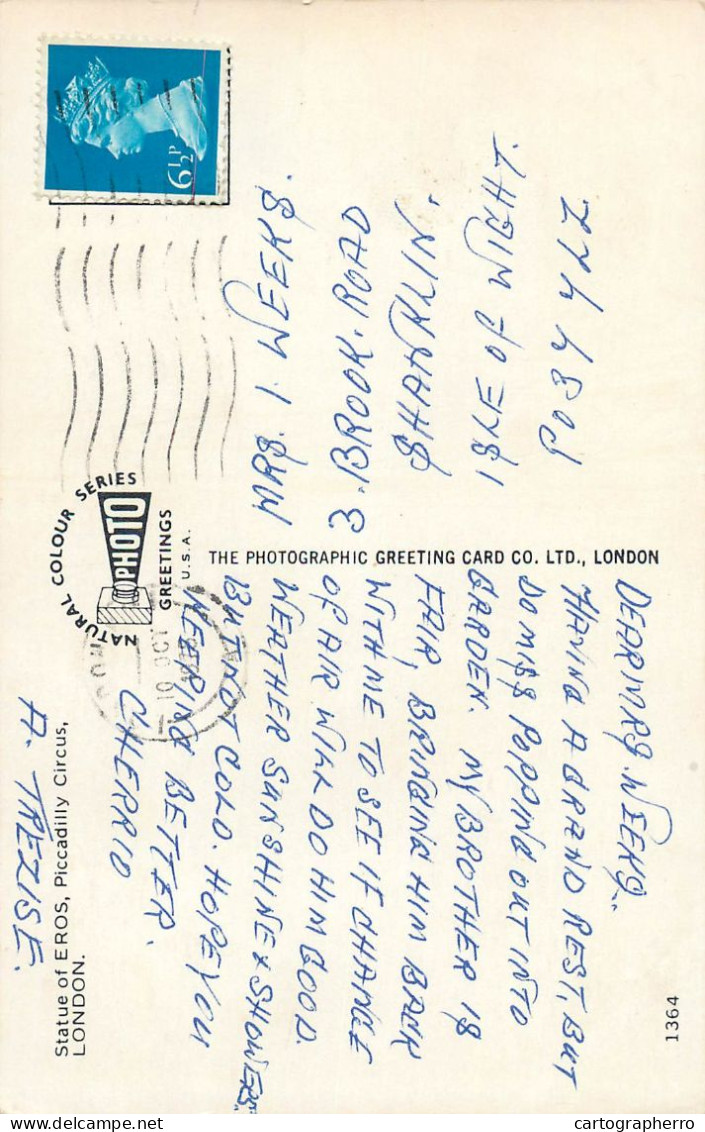 Statue of EROS, Piccadilly Circus,
LONDON.
NATURAL COLOUR SERIES
PHOTO
GREETINGS
U.S.A.
THE PHOTOGRAPHIC GREETING CARD CO. LTD., LONDON
1364
DEAR MRS. WEEKS.
HAVING A GRAND REST, BUT
DO MISS POPPING OUT INTO
GARDEN. MY BROTHER IS
FAIR, BRINGING HIM BACK
WITH ME TO SEE IF CHANGE
OF AIR WILL DO HIM GOOD.
WEATHER SUNSHINE & SHOWERS.
BUT NOT COLD. HOPE YOU
KEEPING BETTER.
CHERRIO
A. TREZISE.
6½P
10 OCT
MRS. I. WEEKS.
3. BROOK. ROAD
SHANKLIN.
ISLE OF WIGHT.
cartographerro